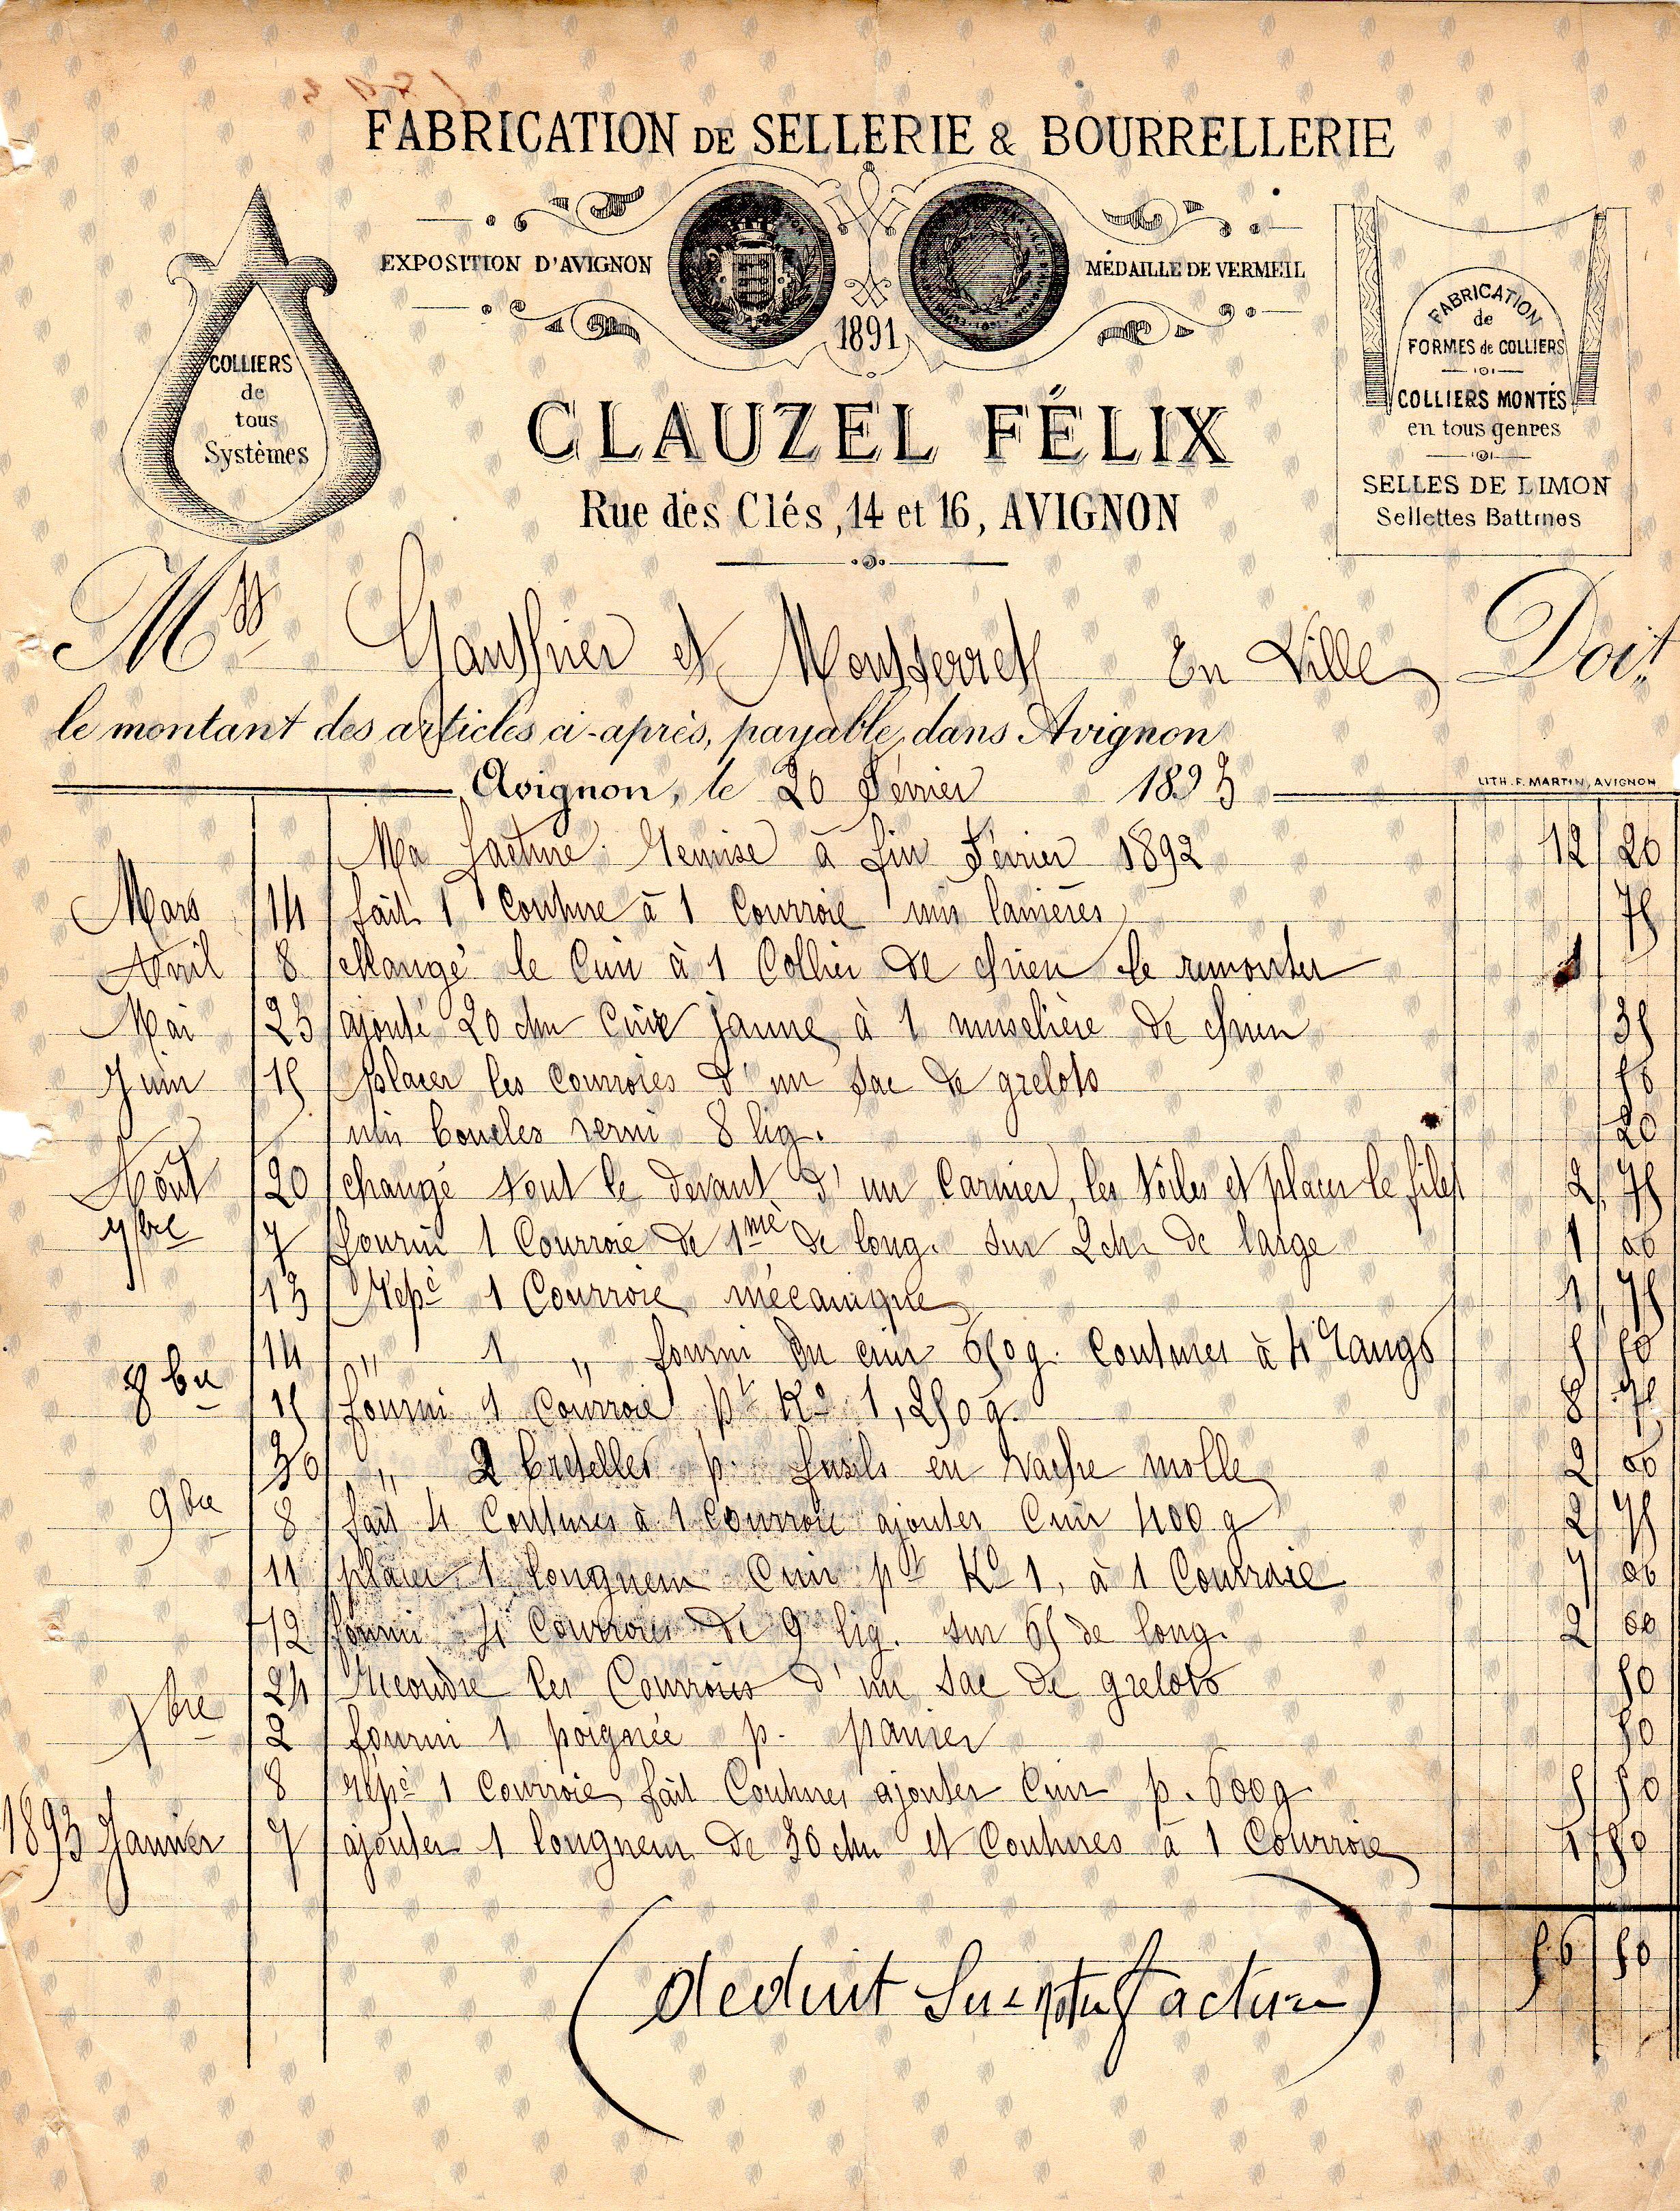 FABRICATION DE SELLERIE & BOURRELLERIE
EXPOSITION D'AVIGNON
MÉDAILLE DE VERMEIL
1891
COLLIERS
de
tous
Systèmes
FABRICATION
de
FORMES de COLLIERS
COLLIERS MONTÉS
en tous genres
SELLES DE LIMON
Sellettes Battines
CLAUZEL FÉLIX
Rue des Clés, 14 et 16, AVIGNON
Mrs Gauthier et En Ville Doit
le montant des articles ci-après, payable dans Avignon
Avignon, le 20 Février 1893
LITH. F. MARTIN, AVIGNON
Ma facture Remise à fin Février 1892 12 20
Mars 14 fait 1 Couture à 1 Courroie mis lanières 75
Avril 8 Changé le Cuir à 1 Collier de chien le remonter 1
Mai 23 ajouté 20 cm Cuir jaune à 1 muselière de chien 35
Juin 15 placer les Courroies d'un sac de grelots 50
mis boucles verni 8 lig. 20
Août 20 changé tout le devant d'un Carnier, les toiles et placer le filet 2, 75
7bre 7 fourni 1 Courroie de 1me de long. sur 2 cm de large 1 00
13 Repé 1 Courroie mécanique 1, 75
14 " 1 " fourni du cuir 650 g. Coutures à 4 rangs 5 50
8bre 15 fourni 1 Courroie pt Ko 1,250 g. 8 75
30 " 2 bretelles p. fusils en vache molle 2 00
9bre 8 fait 4 Coutures à 1 courroie ajouter Cuir 400 g 2 75
11 placer 1 longueur Cuir pt Ko 1, à 1 Courroie 7 00
12 fourni 4 Courroies de 9 lig. sur 65 de long. 2 60
24 Recoudre les Courroies d'un sac de grelots 50
Xbre 2 fourni 1 poignée p. panier 50
8 repé 1 Courroie fait Coutures ajouter Cuir p. 600 g 5 50
1893 Janvier 7 ajouter 1 longueur de 30 cm et Coutures à 1 Courroie 1 50
56 50
(deduit Sur notre facture)